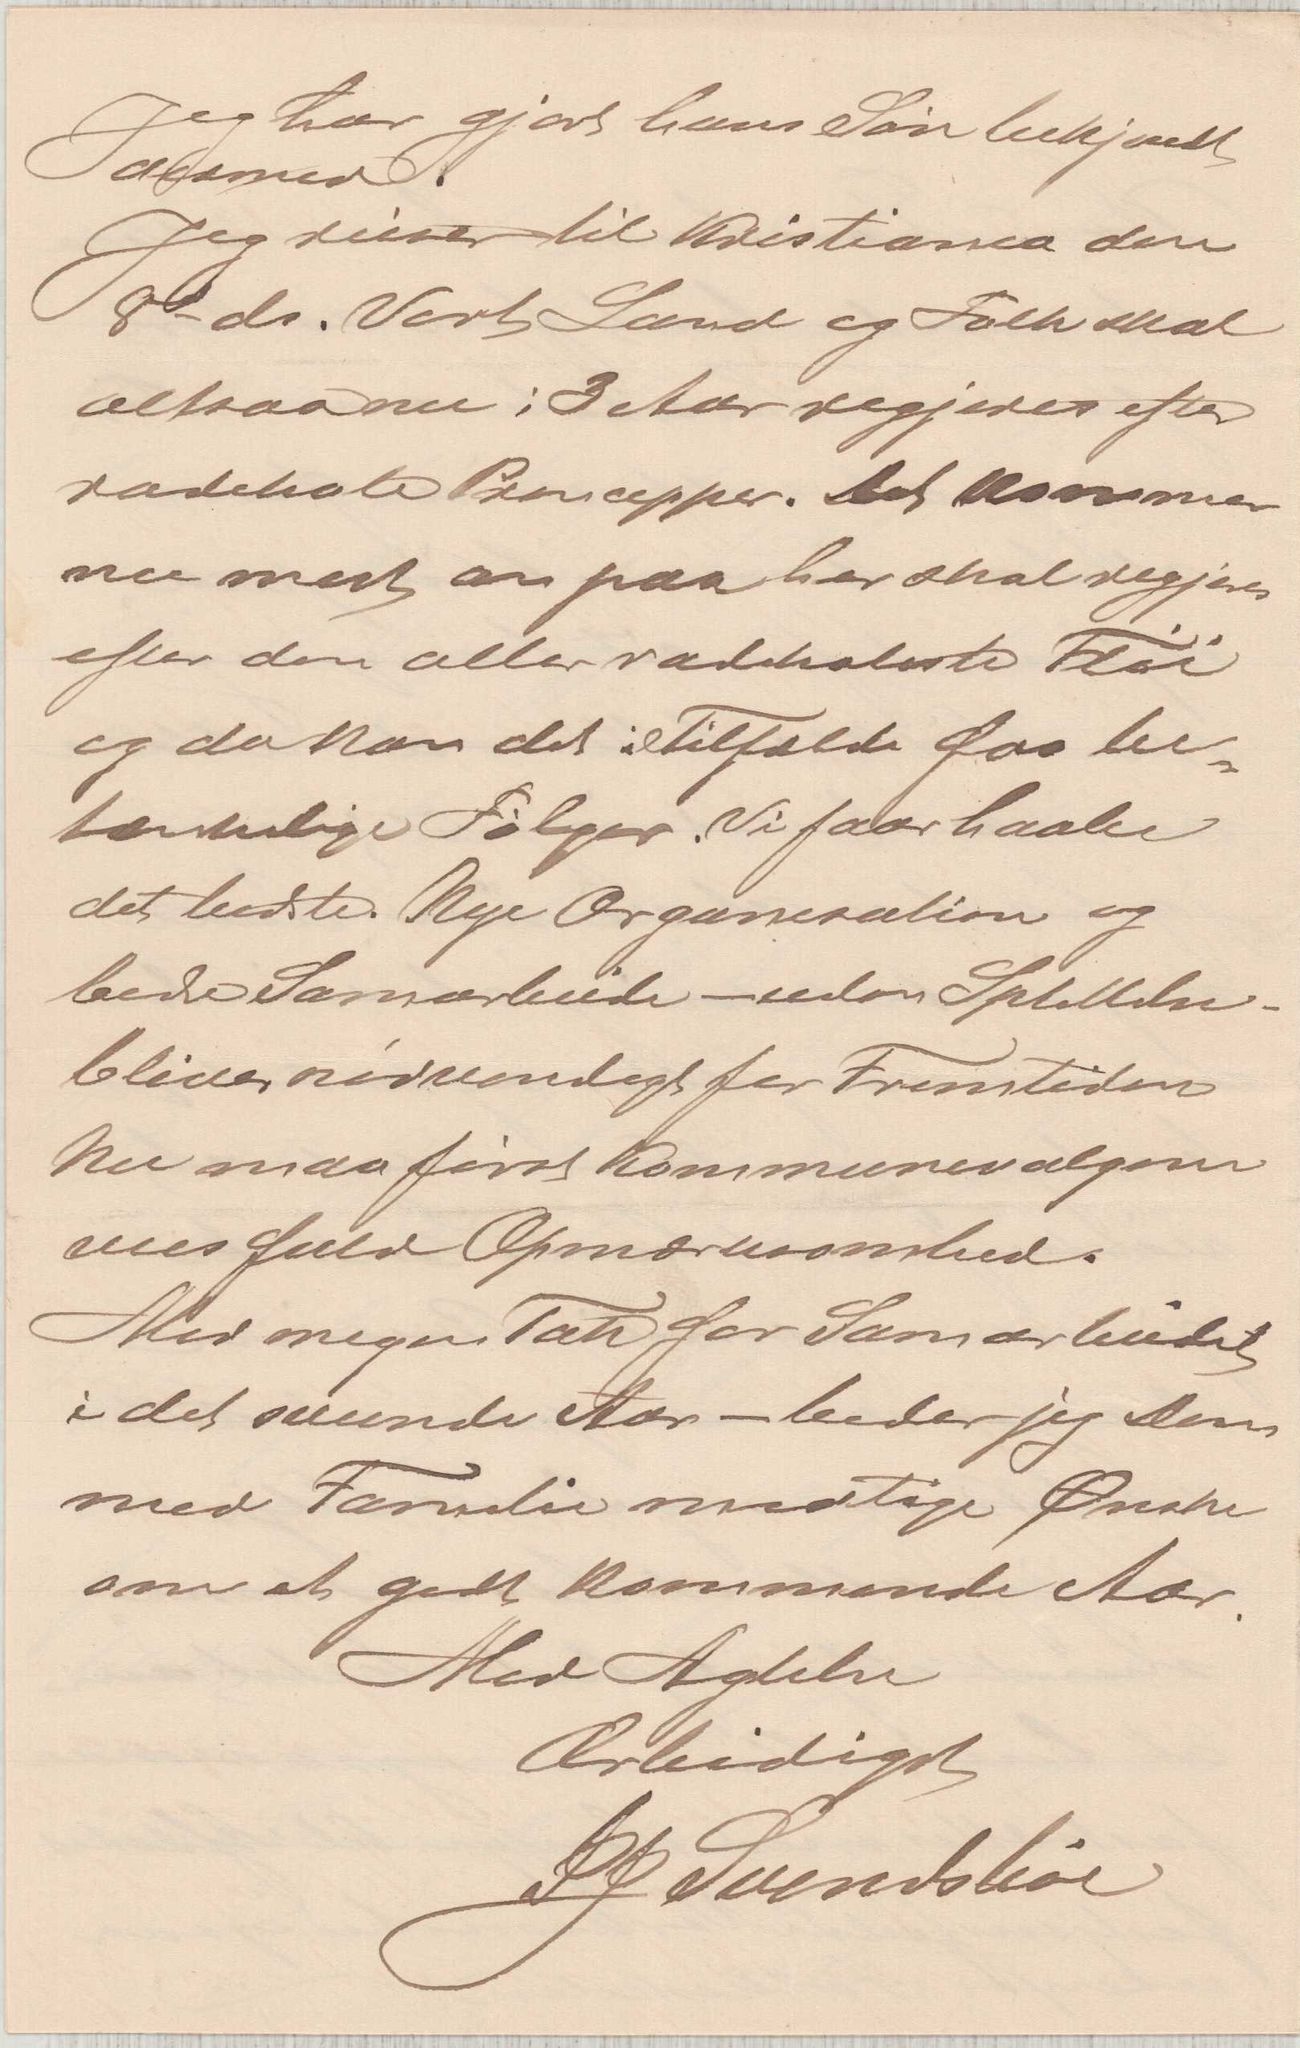 Jeg har gjort hans Søn bekjendt
dermed.
Jeg reiser til Kristiania den
8de ds. Vort Land og Folk skal
altsaa nu i 3 Aar regjeres efter
radikale Principper. Det kommer
nu mest an paa her skal regjeres
efter den aller radikaleste Fløi
og da kan det i Tilfælde faa be-
tænkelige Følger. Vi faar haabe
det bedste. Nye Organisation og
bedre Samarbeide – uden Splittelse –
bliver nødvendigt for Fremtiden
Nu maa først Kommunevalgene
vies fuld Opmærksomhed.
Med megen Tak for Samarbeidet
i det svundne Aar – beder jeg Dem
med Familie modtage Ønske
om et godt kommende Aar.
Med Agtelse
Ærbødigst
Svendsbøe